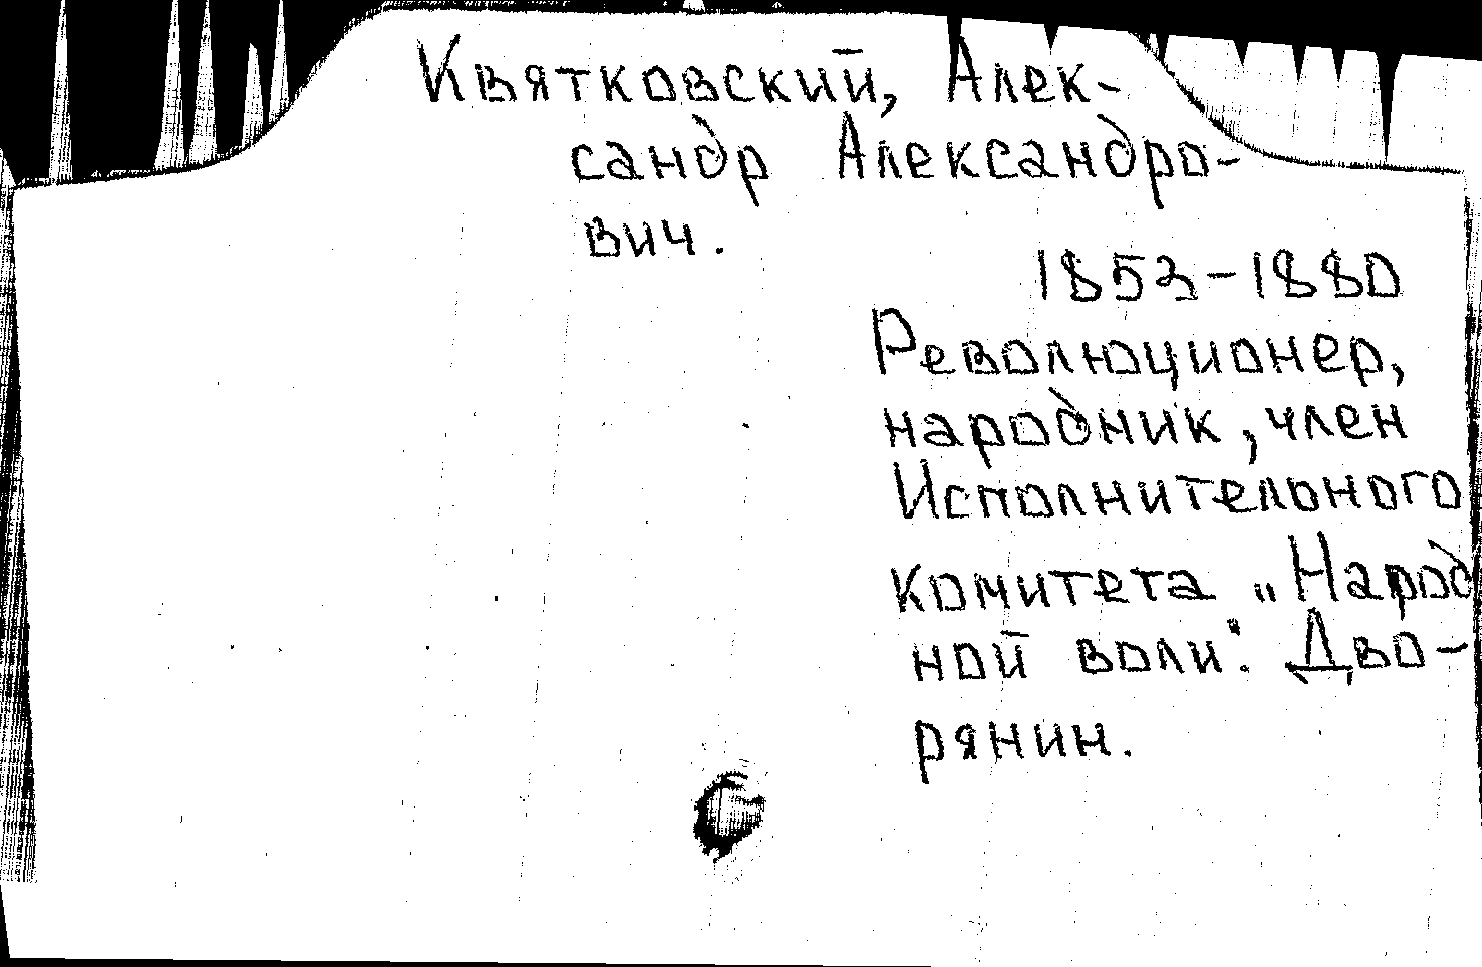 Квятковский, Алек-
сандр Александро-
вич.
1853-1880
Революционер,
народник, член
Исполнительного
комитета „Народ
ной воли". Дво-
рянин.